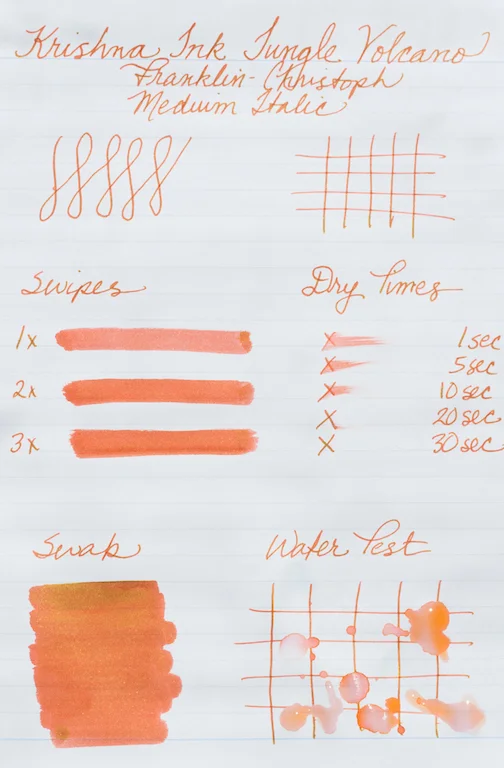 Krishna Ink Jungle Volcano
Franklin-Christoph
Medium Italic
Swipes
1x
2x
3x
Dry Times
X 1 sec
X 5 sec
X 10 sec
X 20 sec
X 30 sec
Swab
Water Test